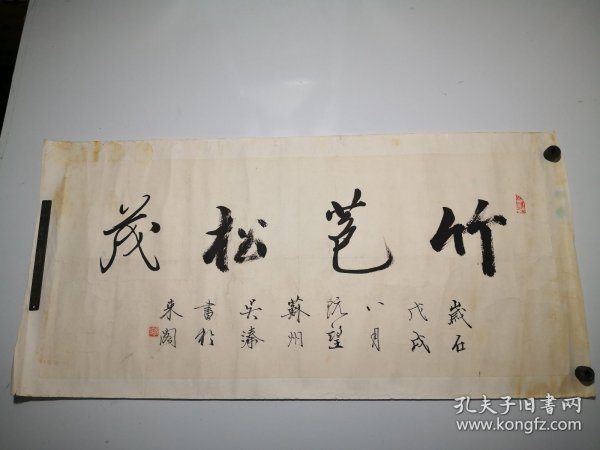 竹苞松茂
歲在
戊戌
八月
既望
蘇州
吳溱
書於
來閣
孔夫子旧書网
www.kongfz.com